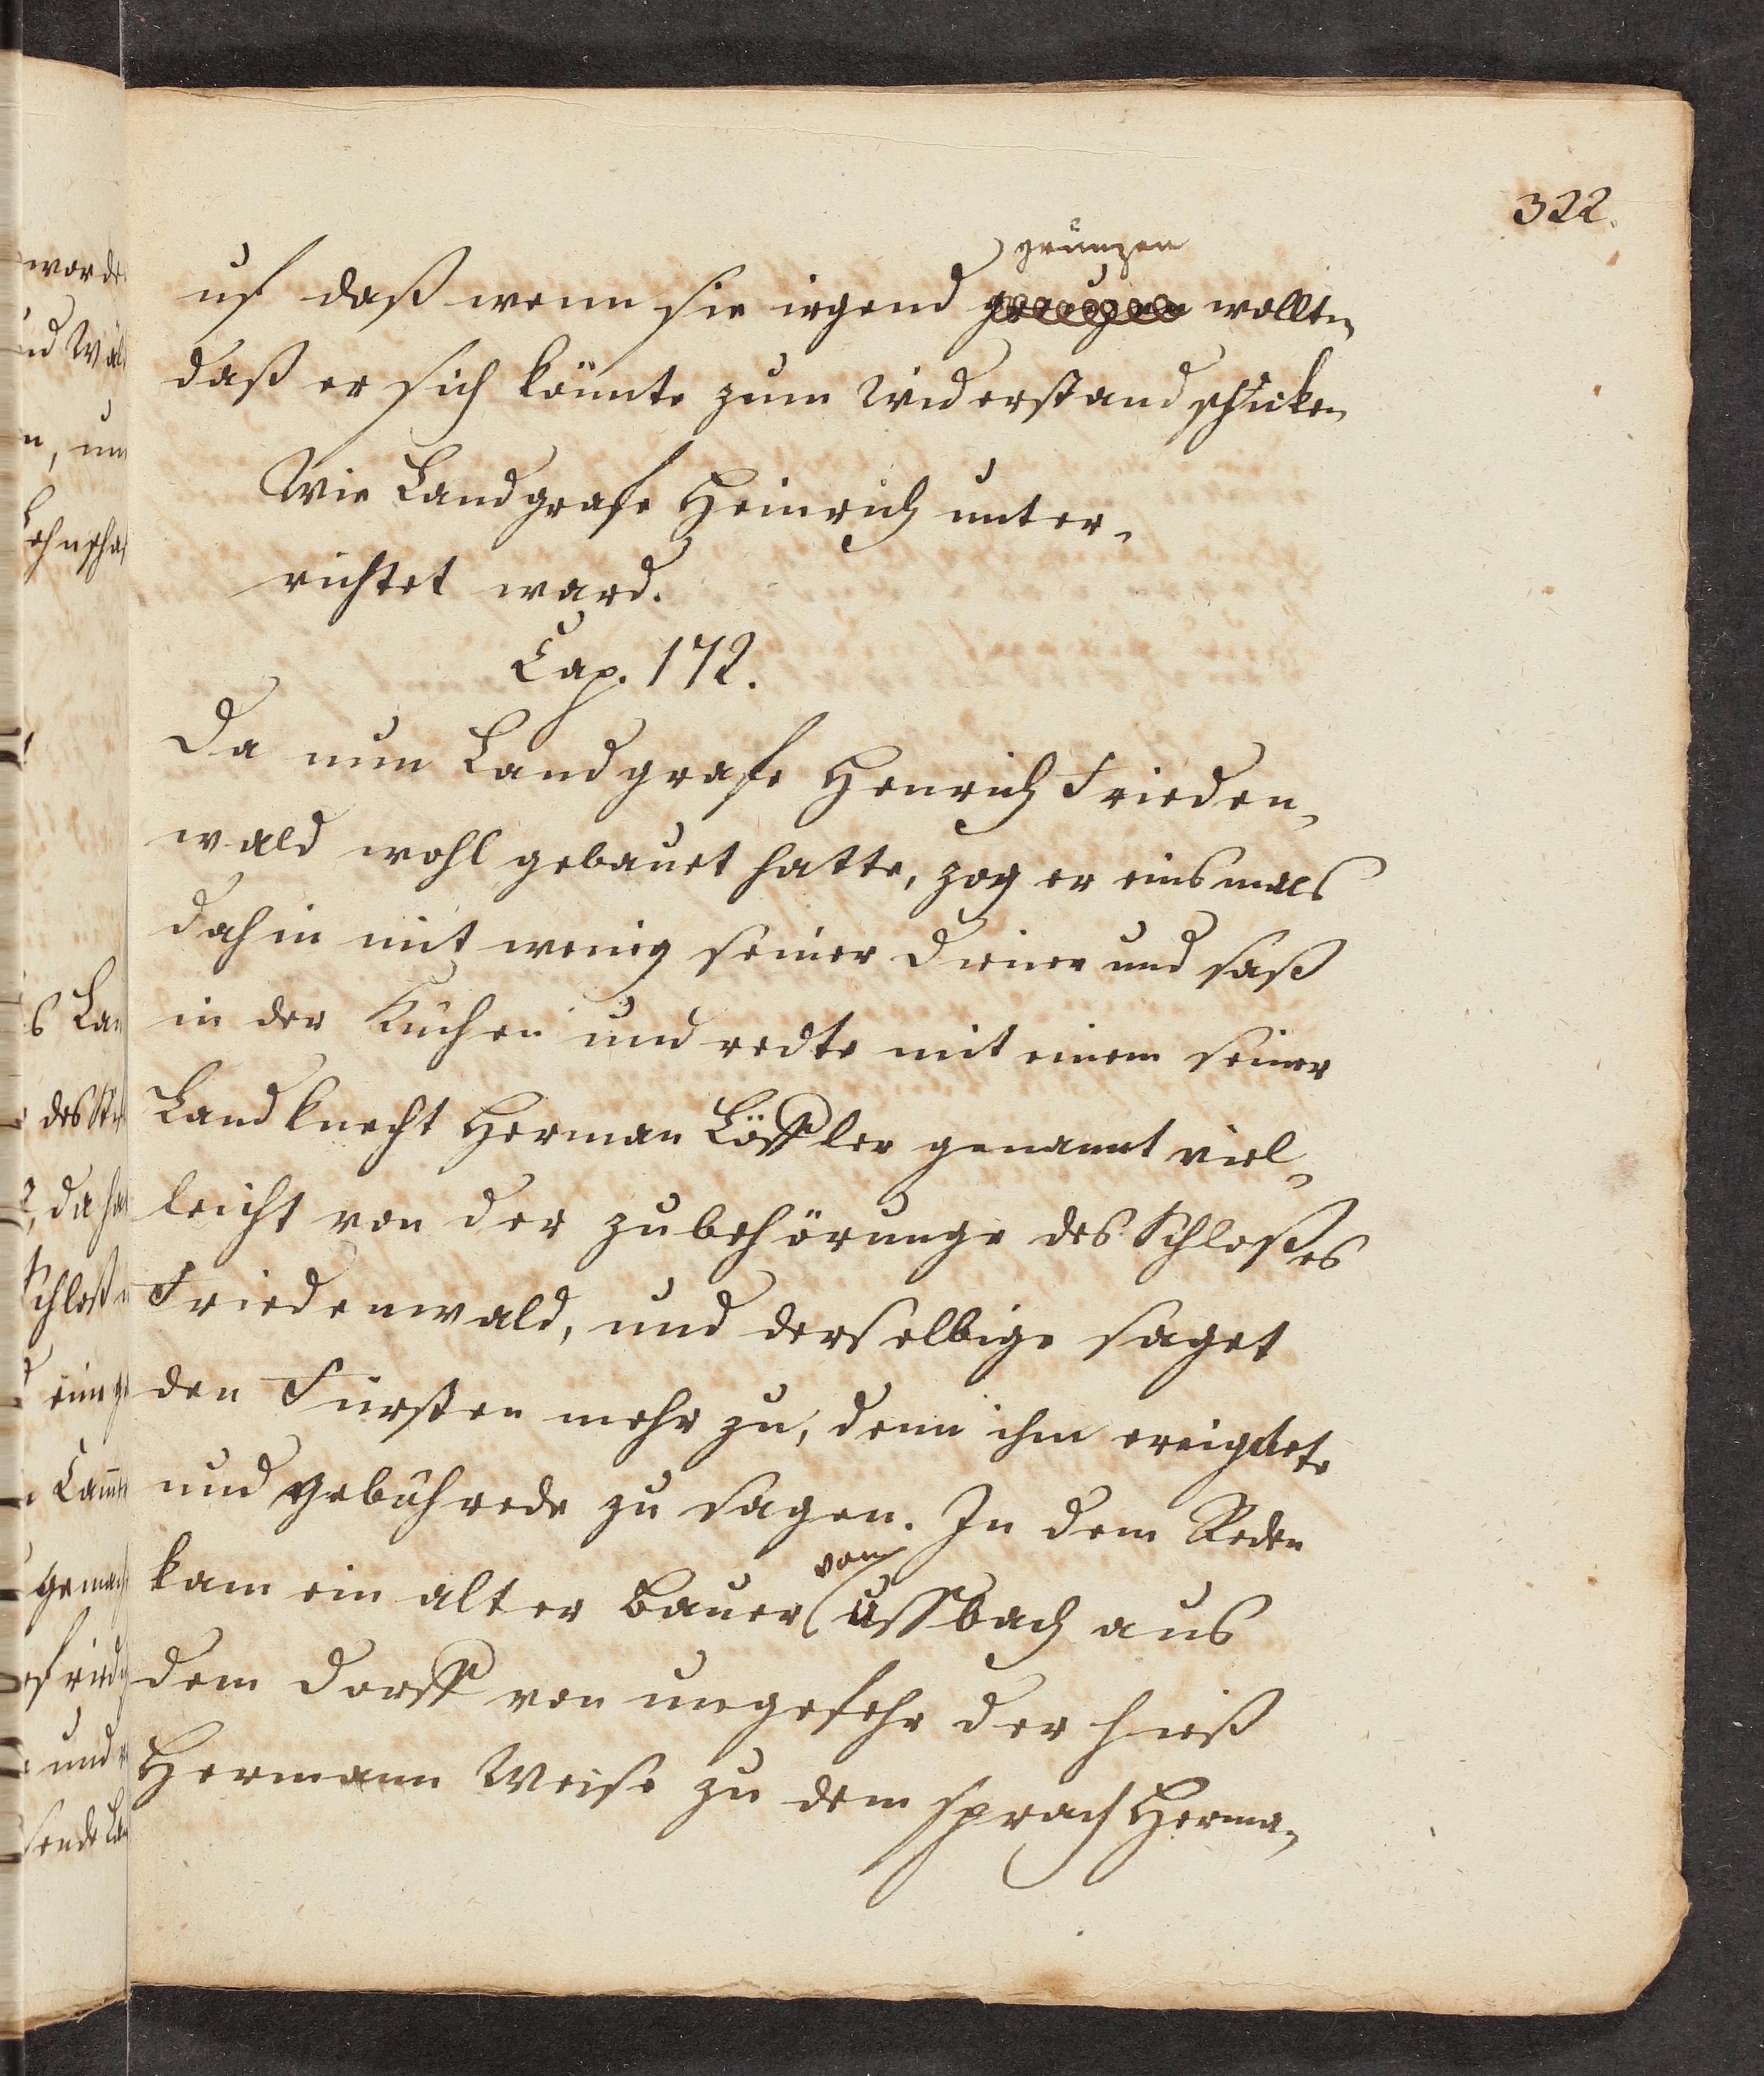 322.
grunzen
uf daß wenn sie irgend wollten
daß er sich könnte zum Widerstand schicken
Wie Landgrafe Heinrich unter-
richtet ward.
Cap. 172.
Da nun Landgrafe Henrich Frieden-
wald wohl gebauet hatte, zog er einsmals
dahin mit wenig seiner Diener und saß
in der Kuchen und redte mit einem seiner
Landknecht Herman Löffler genannt viel-
leicht von der zubehörunge des Schloßes
Friedenwald, und derselbige saget
den Fürsten mehr zu, denn ihm ereigdete
und gebührede zu sagen. In dem Reden
von
kam ein alter Bauer Ussbach aus
dem Dorff von ungefehr der hieß
Hermann Weise zu dem sprach Herma-